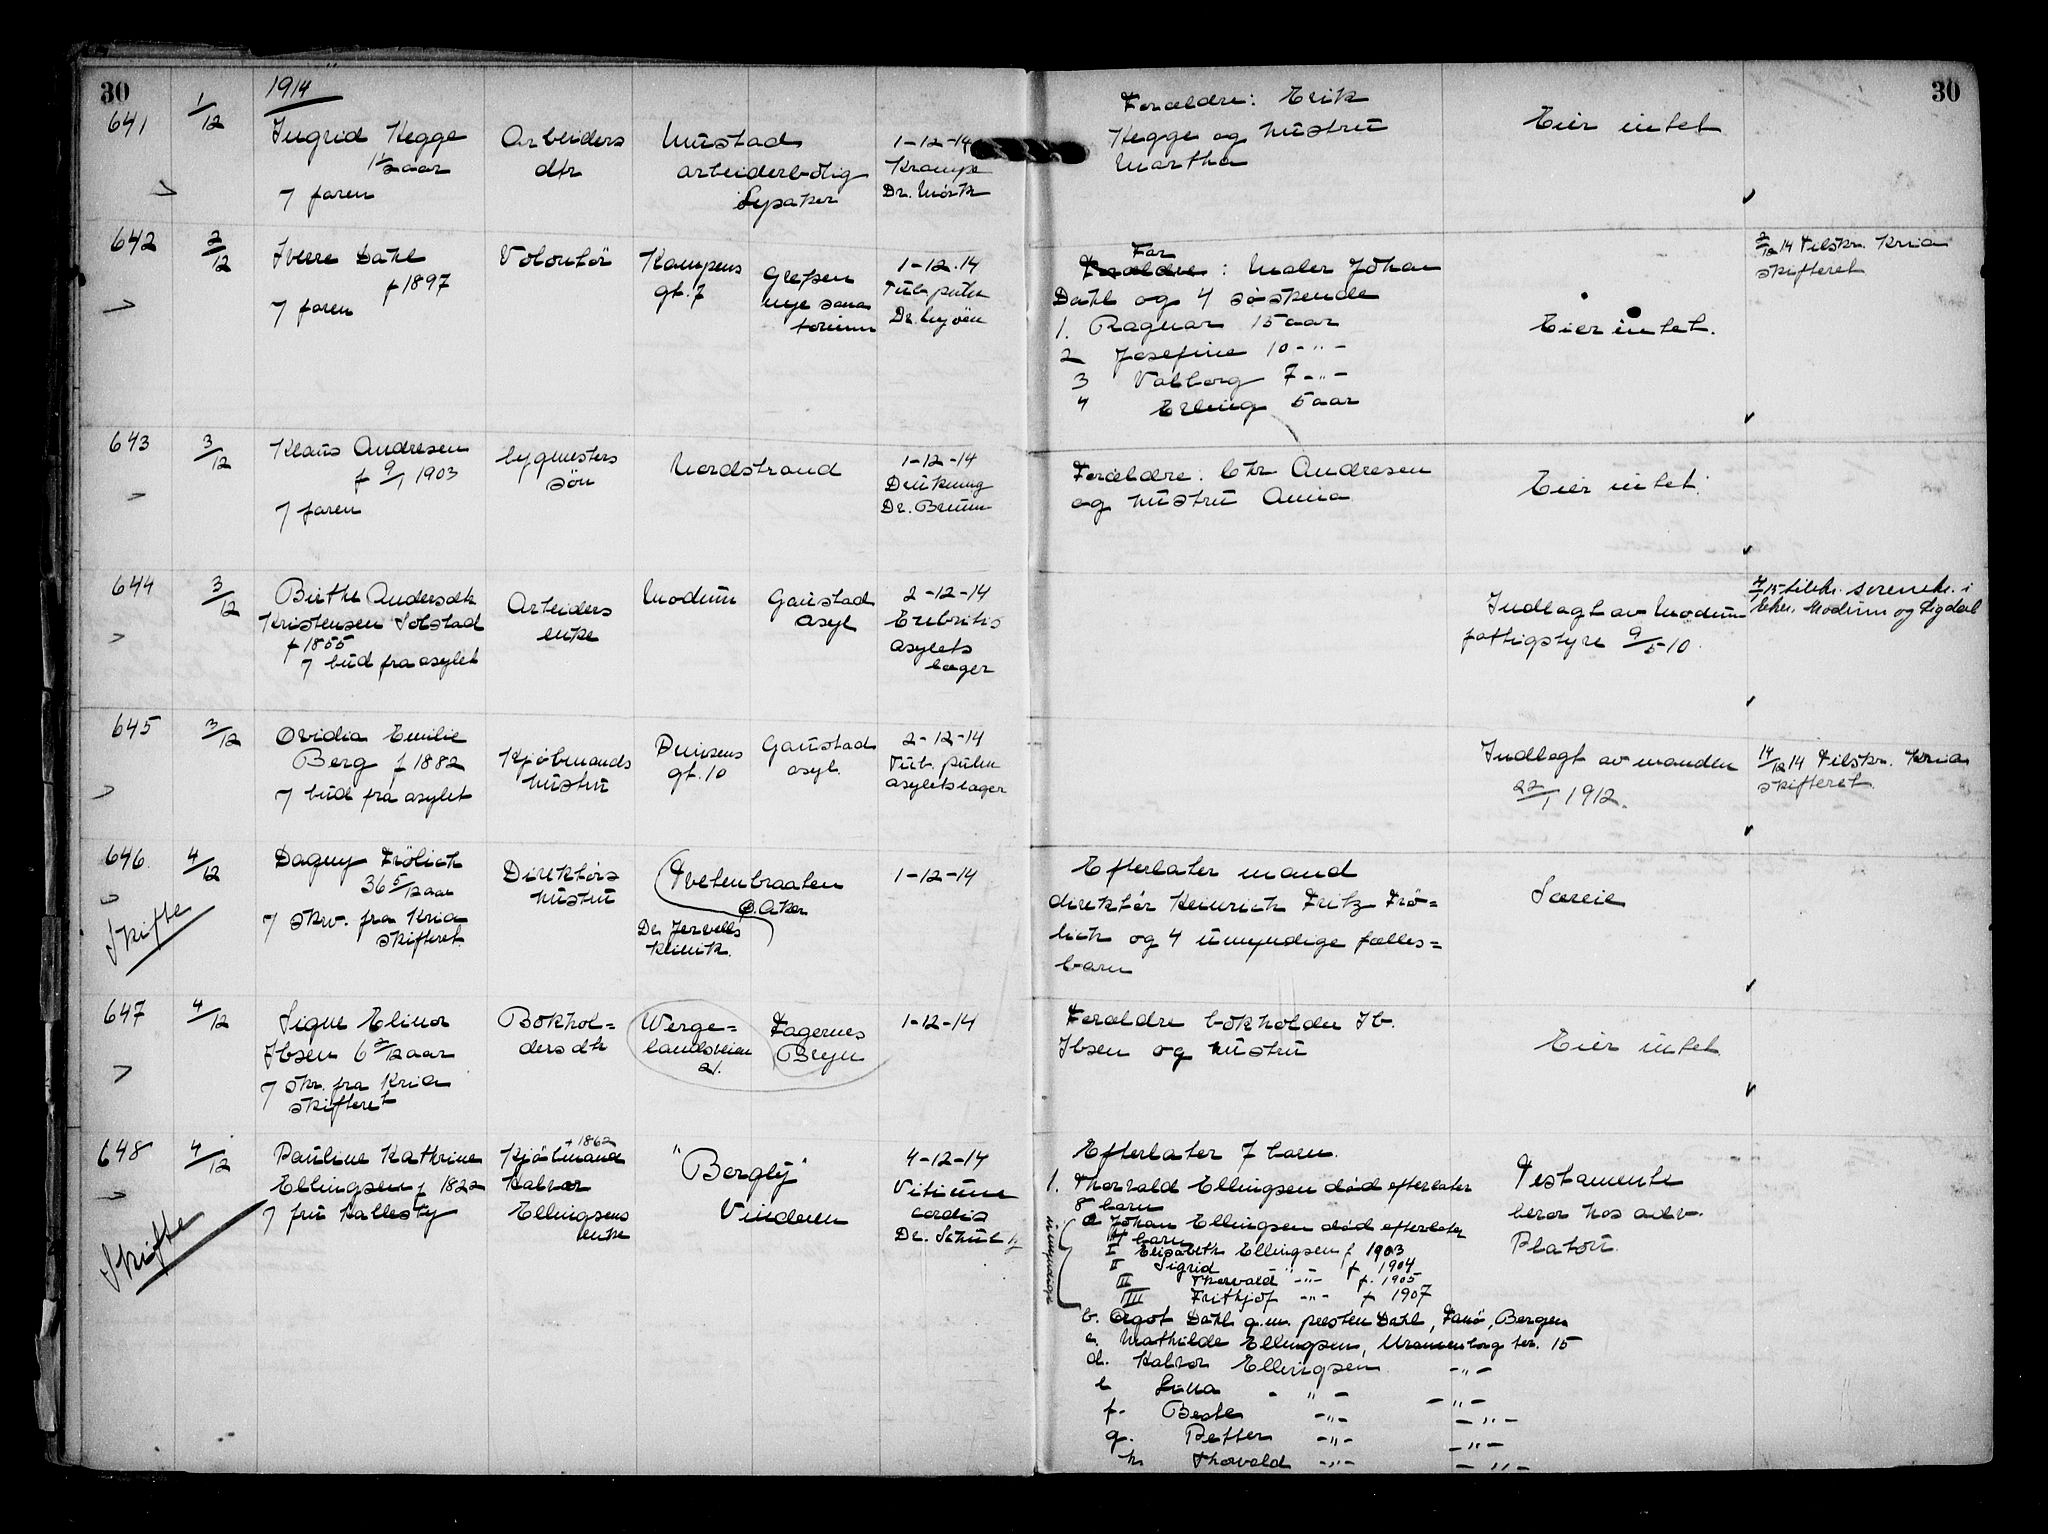 30
30
1914
641
1/12
Ingrid Hegge
1 1/2 aar
7 faren
Arbeiders
dtr
Mustad
arbeiderbolig
Lysaker
1-12-14
Krampe
Dr. Mørk
Forældre: Erik
Hegge og hustru
Martha
Eier intet
642
2/12
Sverre Dahl
f 1897
7 faren
Volontør
Kampens
gt. 7
Grefsen
nye sana
torium
1-12.14
Tub. pulm
Far
Forældre: Maler Johan
Dahl og 4 søskende
1. Ragnar 15 aar
2 Josefine 10 -"-
3 Valborg 7 -"-
4 Erling 5 aar
Eier intet.
2/12 14 Tilskr. Kria
skifteret
643
3/12
Klaus Andresen
f 9/1 1903
7 faren
bygmesters
søn
Nordstrand
1-12-14
Drukning
Dr. Bruun
Forældre: Chr Andresen
og hustru Anna
Eier intet.
644
3/12
Birthe Andersdtr
Kristensen Solstad
f 1855
7 bud fra asylet
Arbeiders
enke
Modum
Gaustad
asyl
2-12-14
asylets
læger
Indlagt av Modum
fattigstyre 9/5-10.
Modum og Sigdal
645
3/12
Ovidia Emilie
Berg f 1882
7 bud fra asylet
Kjøbmands
hustru
gt. 10
Gaustad
asyl.
2-12-14
Tub. pulm
asylets læger
Indlagt av manden
22/1 1912.
14/12 14 Tilskr. Kria
skifteret.
646.
4/12
Dagny Frölich
36 5/12 aar
7 skr. fra Kria
skifteret
Skifte
Direktørs
hustru
Tvetenbraaten
Ø. Aker
Dr. Jervells
klinik.
1-12-14
Efterlater mand
direktør Heinrich Fritz Frö=
lich og 4 umyndige fælles=
barn
Særeie
647
4/12
Signe Elinor
Ibsen 6 2/12 aar
7 skr. fra Kria
skifteret
Bokhol=
ders dtr
Werge=
landsveien
21.
Fagernes
Bryn
1-12-14
Forældre bokholder Ib.
Ibsen og hustru
Eier intet
648
4/12
Pauline Kathrine
Ellingsen f 1822
7 fru Hallesby
Skifte
+ 1862
Kjøbmand
Halvor
Ellingsens
enke
"Bergly"
Vinderen
4-12-14
Vitium
cordis
Dr. Schultz
Efterlater 7 barn.
1. Thorvald Ellingsen död efterlater
8 barn
a Johan Ellingsen död efterlater
4 barn
I Elisabeth Ellingsen f 1903
II Sigrid " f 1904
III Thorvald -"- f. 1905
IIII Frithjof -"- f 1907
umyndige
b. Agot Dahl g.m. presten Dahl, Fanö, Bergen
c. Mathilde Ellingsen, Uranienborg ter. 15
d. Halvor Ellingsen -"-
e -"- -"-
f. -"- -"-
g. Petter -"- -"-
h Thorvald -"- -"-
Testamente
beror hos adv.
Platou.